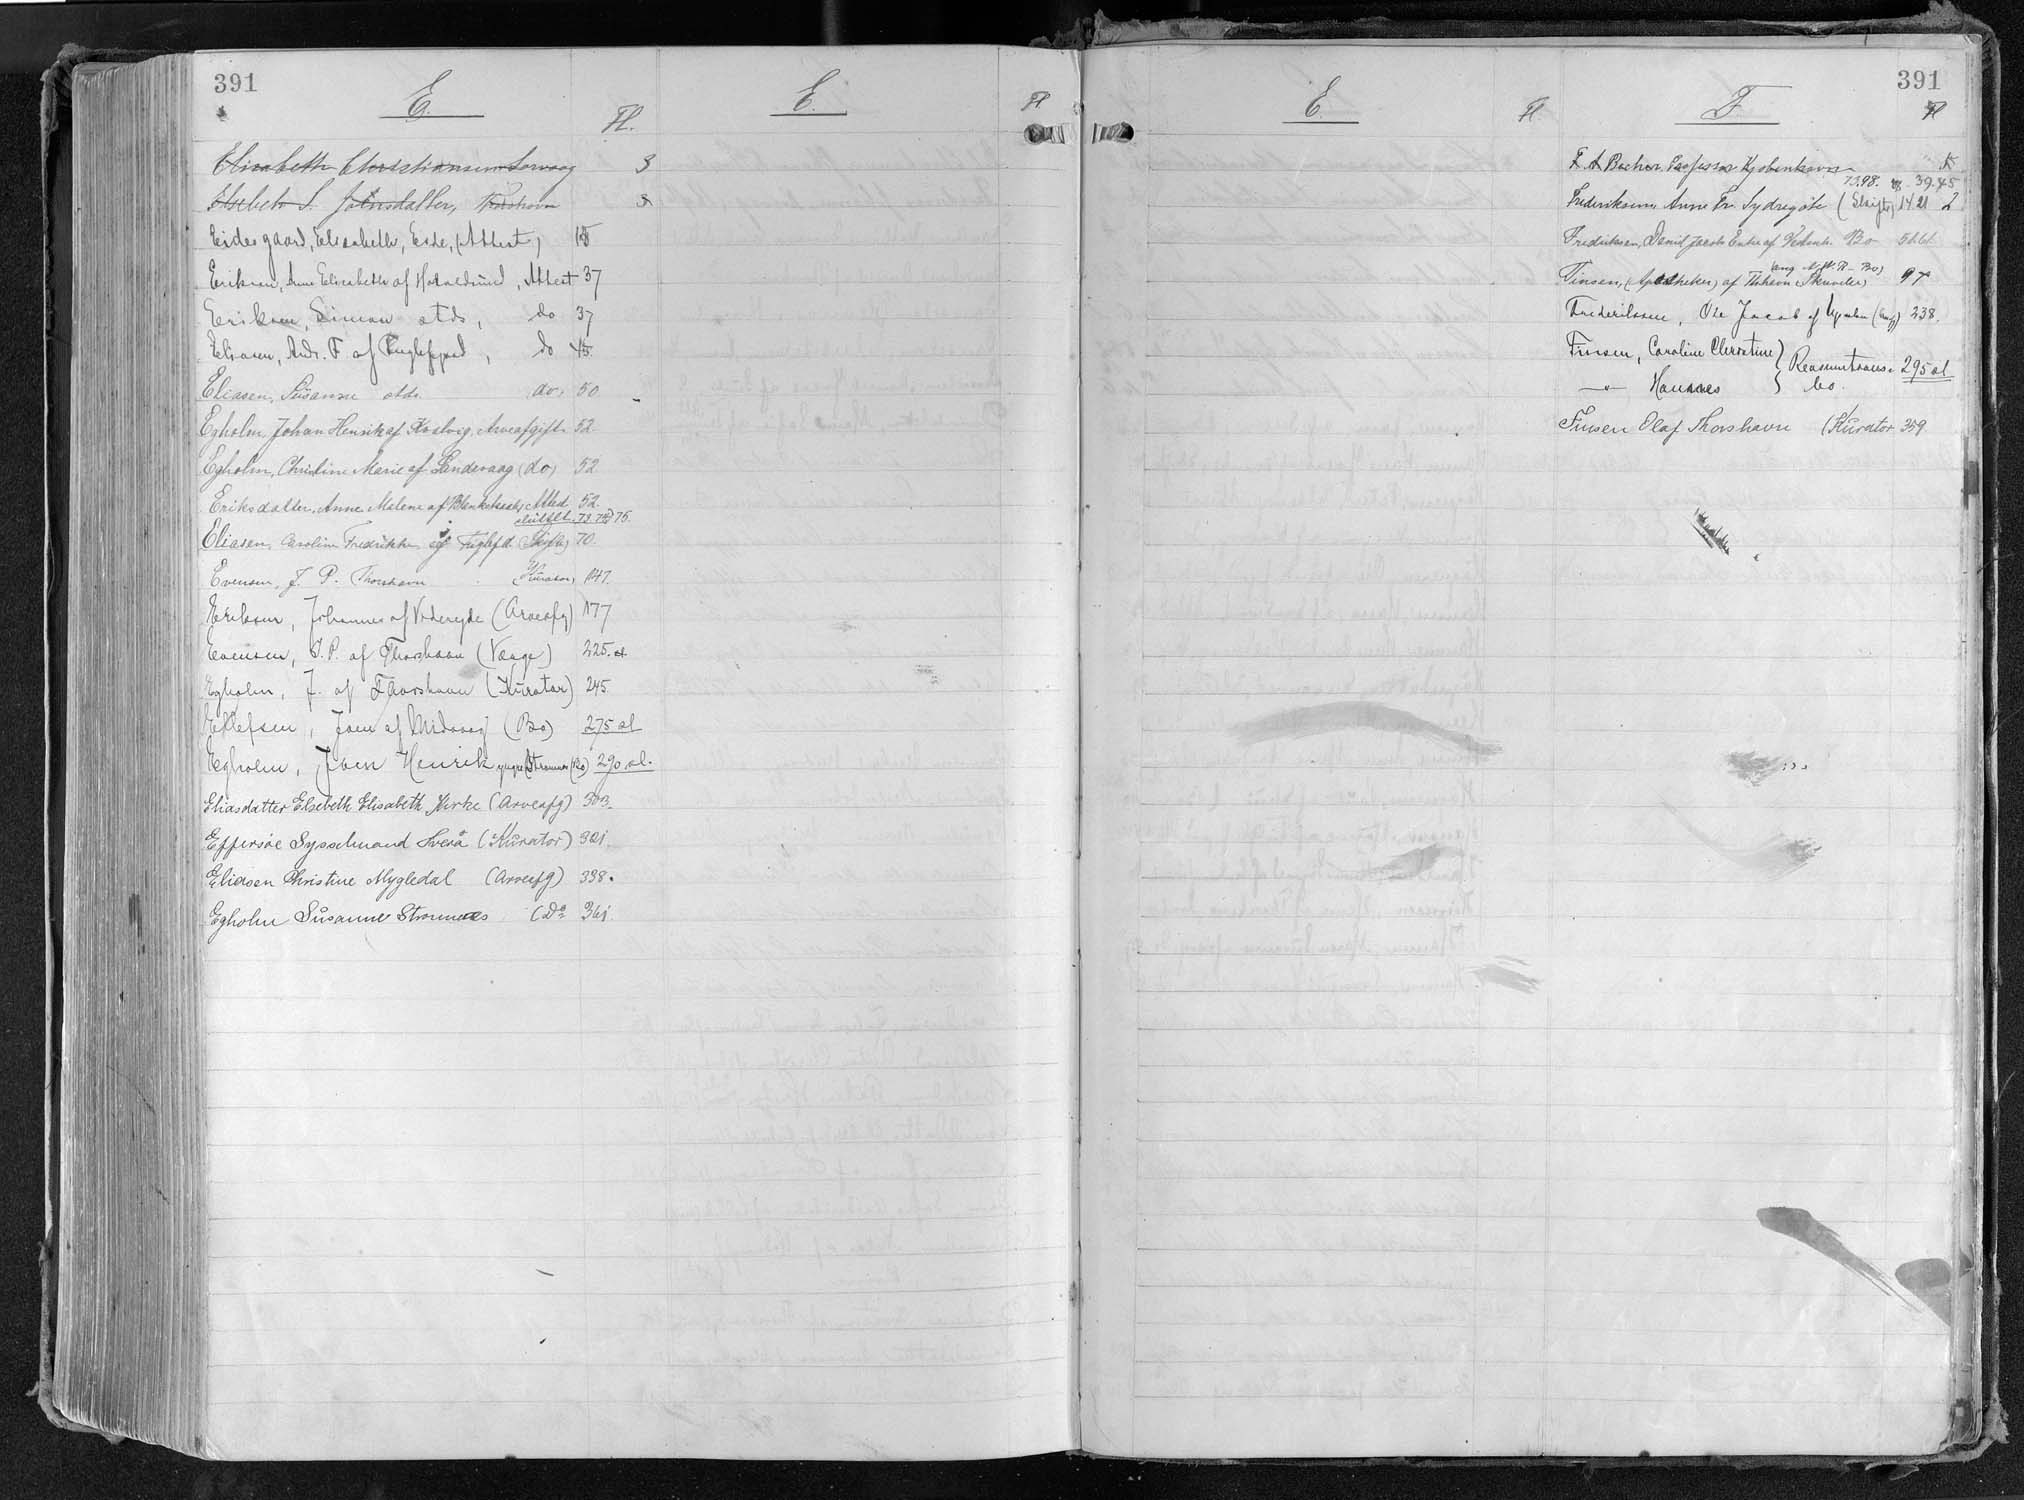 391
E.
Fl.
E.
Fl
Elisabeth Christiansen Sorvaag 3
Elsebeth S. Johnsdatter, Thorshavn
Eidesgaard, Elisabeth, Eide, (Attest)
Eriksen, Anne Elisabeth af Haraldsund, Attest 37
Eriksen, Simon stds, do 37
Eliasen, Andr. F. af Fuglefjord, do 45.
Eliasen, Susanne stds. do, 50
Egholm, Johan Henrik af Kvalvig, Arveafgift. 52.
Egholm, Christine Marie af Sandevaag (do) 52
Eriksdatter, Anne Malene af Attest 52.
73. 74. 75.
Eliasen, Caroline Fredrikke, af Fuglefd. Skifte, 70.
Evensen, J. P. Thorshavn Kurator, 147.
Eriksen, Johannes af Videreyde (Arveafg) 177
Evensen, J. P. af Thorshavn (Værge) 225.
Egholm, J. af Thorshavn (Kurator) 245.
Ellefsen, Joen af Midvaag (Bo) 275 ol
Egholm, Joen Henrik yngre Strømnæs (Bo) 290 ol.
Eliasdatter Elsebeth Elisabeth, Kirke (Arveafg) 303.
Effersøe Sysselmand Tverå (Kurator) 321.
Eliasen Christine Mygledal (Arveafg) 338.
Egholm Susanne Strømnæs (Do 361.
391
E.
Fl.
F.
Fl
Professor Kjøbenhavn
73.98. 39.45
Frederiksen, Anne Fr. Sydregøte (Skifte) 14.21
Fredriksen, Daniel Jacob Enke af Bo
Finsen, (Apotheker) af Thshavn (Skiuvdet) 97
Frederiksen, Ole Jacob af (Arvfg) 238.
Finsen, Caroline Christine } 295 ol
—"— Hannes } bo.
Finsen Olaf Thorshavn (Kurator 359